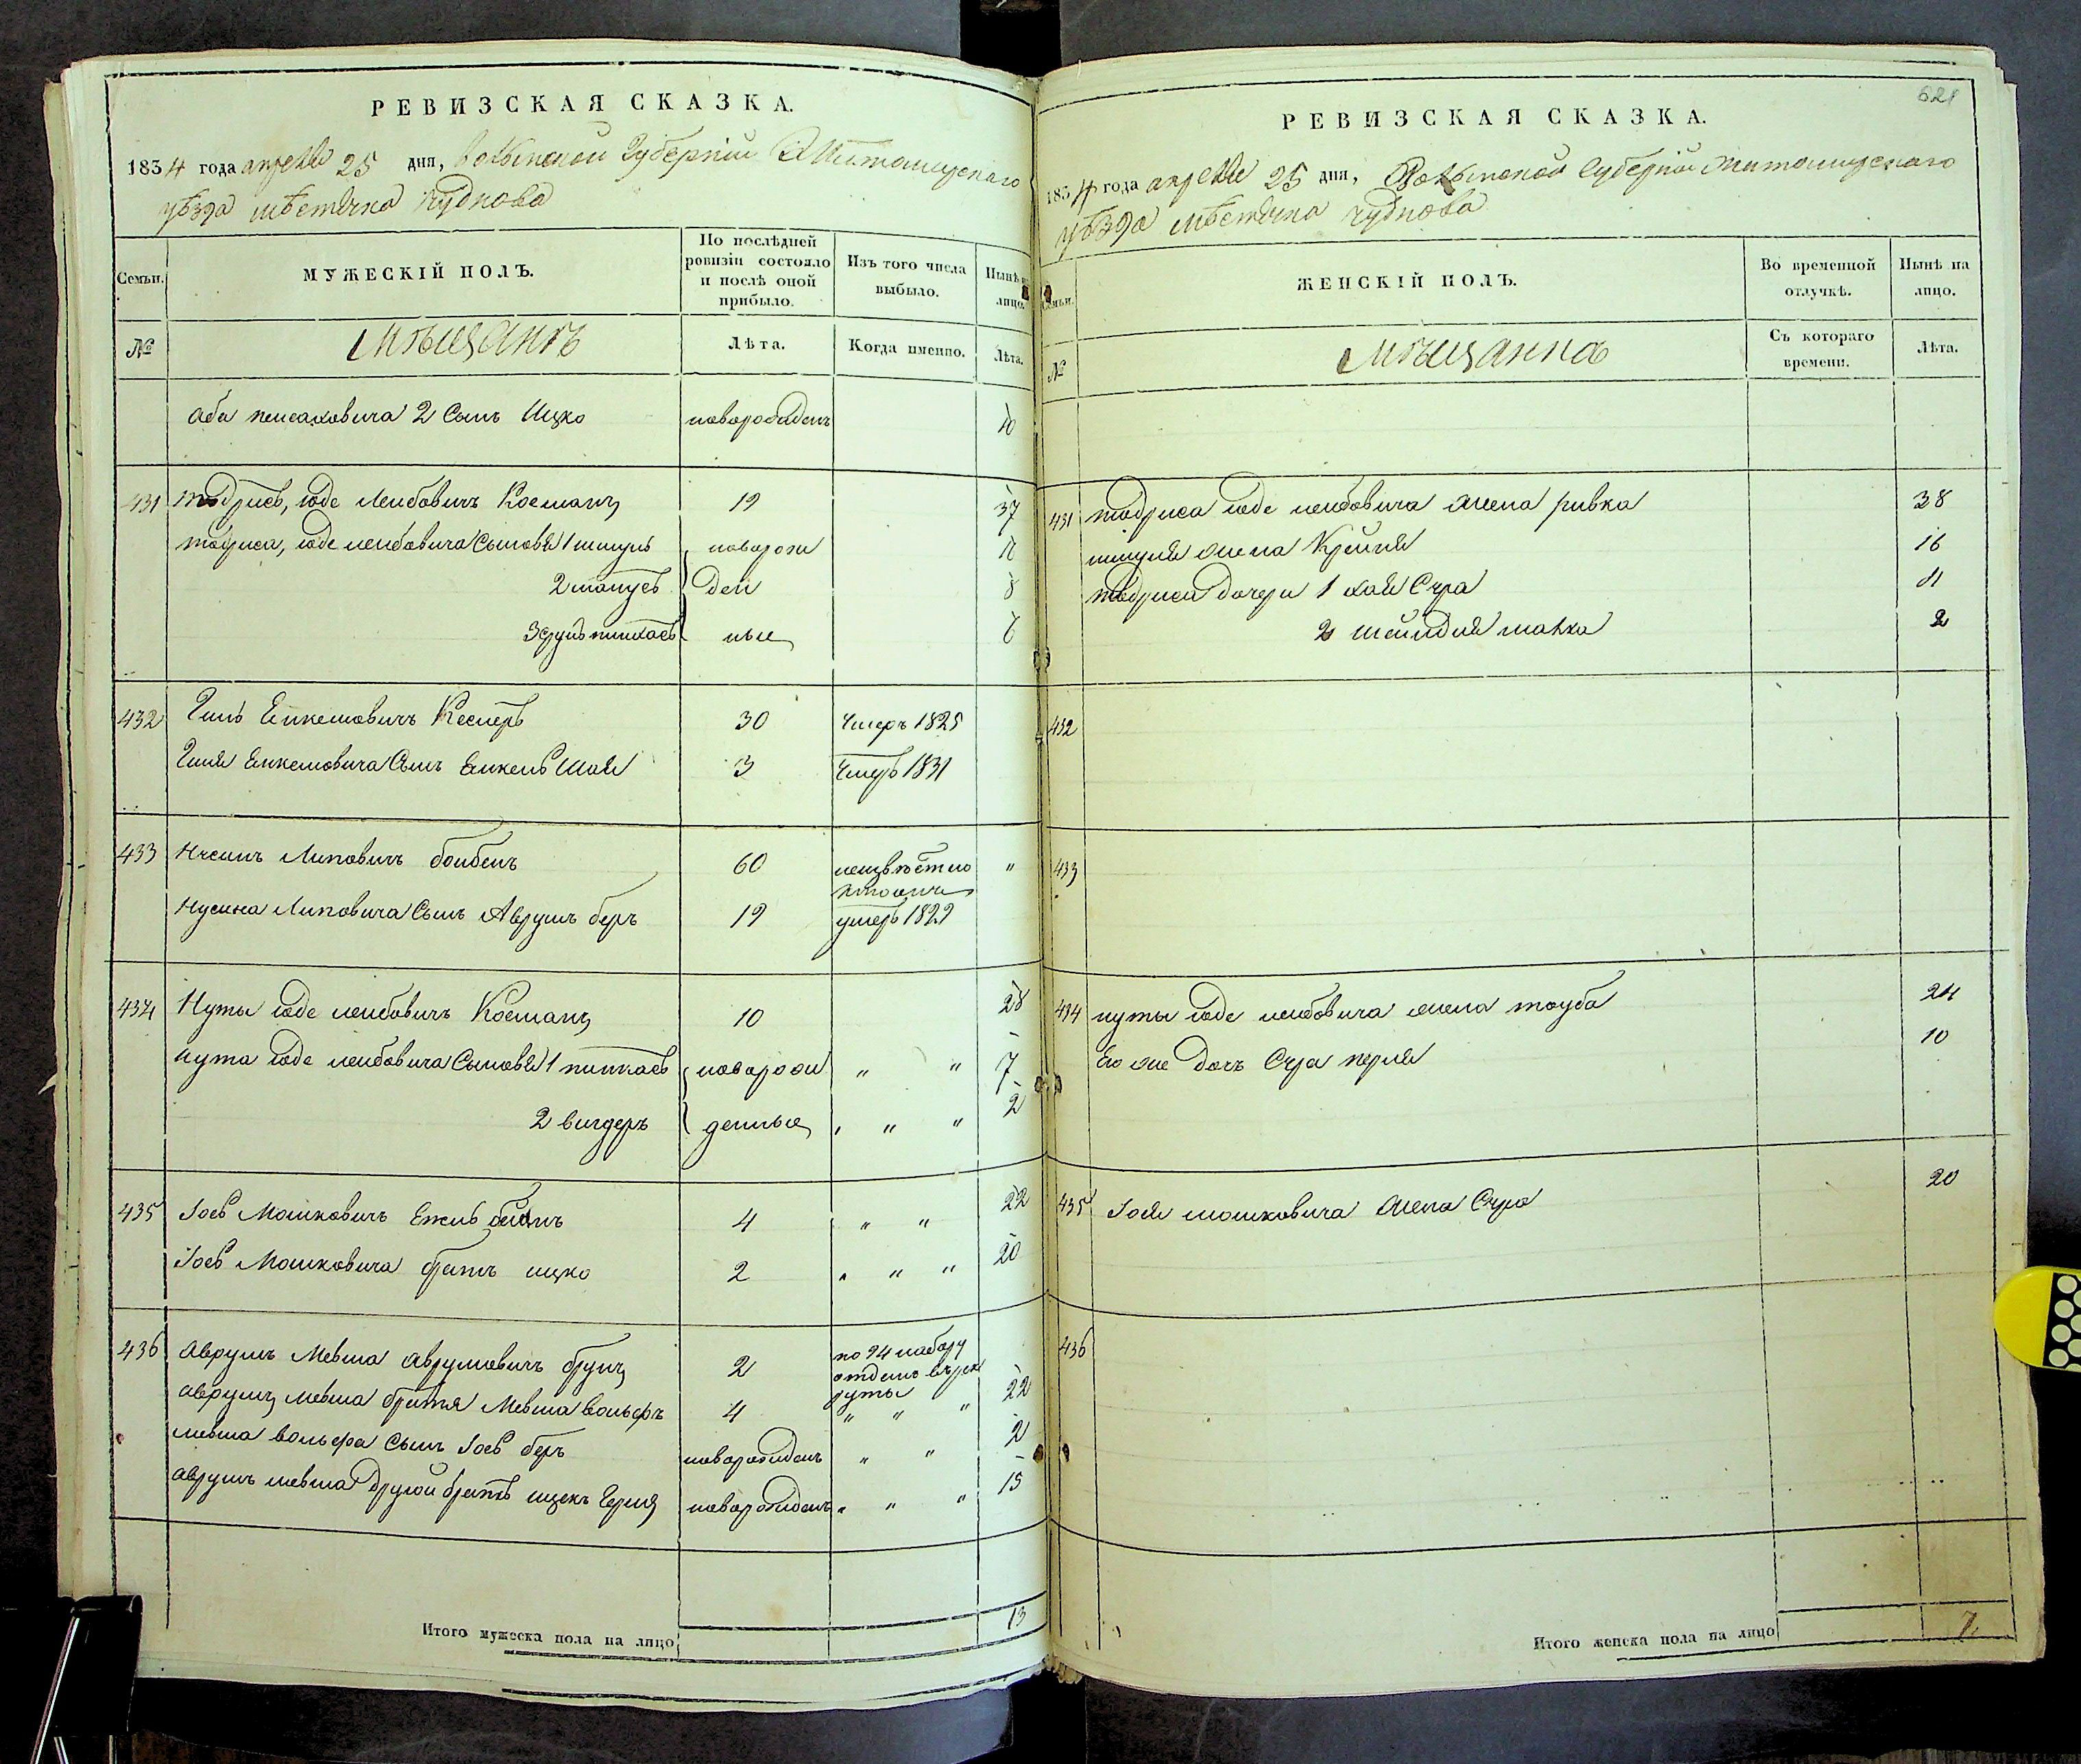 РЕВИЗСКАЯ СКАЗКА.
1834 года апреля 25 дня, Волынской Губернии Житомирскаго
уѣзда мѣстечка Чуднова
Семьи.
МУЖЕСКІЙ ПОЛЪ.
По послѣдней ревизіи состояло и послѣ оной прибыло.
Изъ того числа выбыло.
Нынѣ на лицо.
№
мѣщанъ
Лѣта.
Когда именно.
Лѣта.
Аба пейсаховича 2 Сынъ Ицко новорожденъ 10
431 тодрисъ, юде Лейбовичъ Косманъ 19 37
тодриса, юде лейбовича Сыновья 1 новорож
2 ден 8
3 пинхасъ ные 6
432 Янкелювичъ 30 Умеръ 1825
Янкелювича Сынъ Янкель Шая 3 Умеръ 1831
433 Нусинъ Липовичъ 60 неизвѣстно "
Нусина Липовича Сынъ Аврумъ беръ 19 умеръ 1829
434 Нуты юде лейбовичъ Косманъ 10 28
Нута юде лейбовича Сыновья 1 пинхасъ новорож " " 7
2 вигдеръ денные " " " 2
435 Іось Мошковичъ 4 " " 22
Іось Мошковича братъ ицко 2 " " " 20
436 Аврумъ Мевша Аврумовичъ 2 по 94 набору
отданъ въ рек
руты
Аврумъ Мевша братья Мевша вольфъ 4 " " " 22
мевша вольфа Сынъ Іось беръ новорожденъ " " 2
Аврумъ мевша другой братъ ицекъ Герш новорожденъ " " " 15
Итого мужеска пола на лицо 13
621
РЕВИЗСКАЯ СКАЗКА.
1834 года апреля 25 дня, Волынской Губерніи Житомирскаго
уѣзда мѣстечка Чуднова
Семьи.
ЖЕНСКІЙ ПОЛЪ.
Во временной отлучкѣ.
Нынѣ на лицо.
№
мѣщанка
Съ котораго времени.
Лѣта.
431 тодриса юде лейбовича жена ривка 38
жена Крейня 16
тодриса дочери 1 хая Сура 11
2 шейндля малка 2
432
433
434 нуты юде лейбовича жена тоуба 24
Его же дочь Сура перля 10
435 Іося мошковича жена Сура 20
436
Итого женска пола на лицо 7